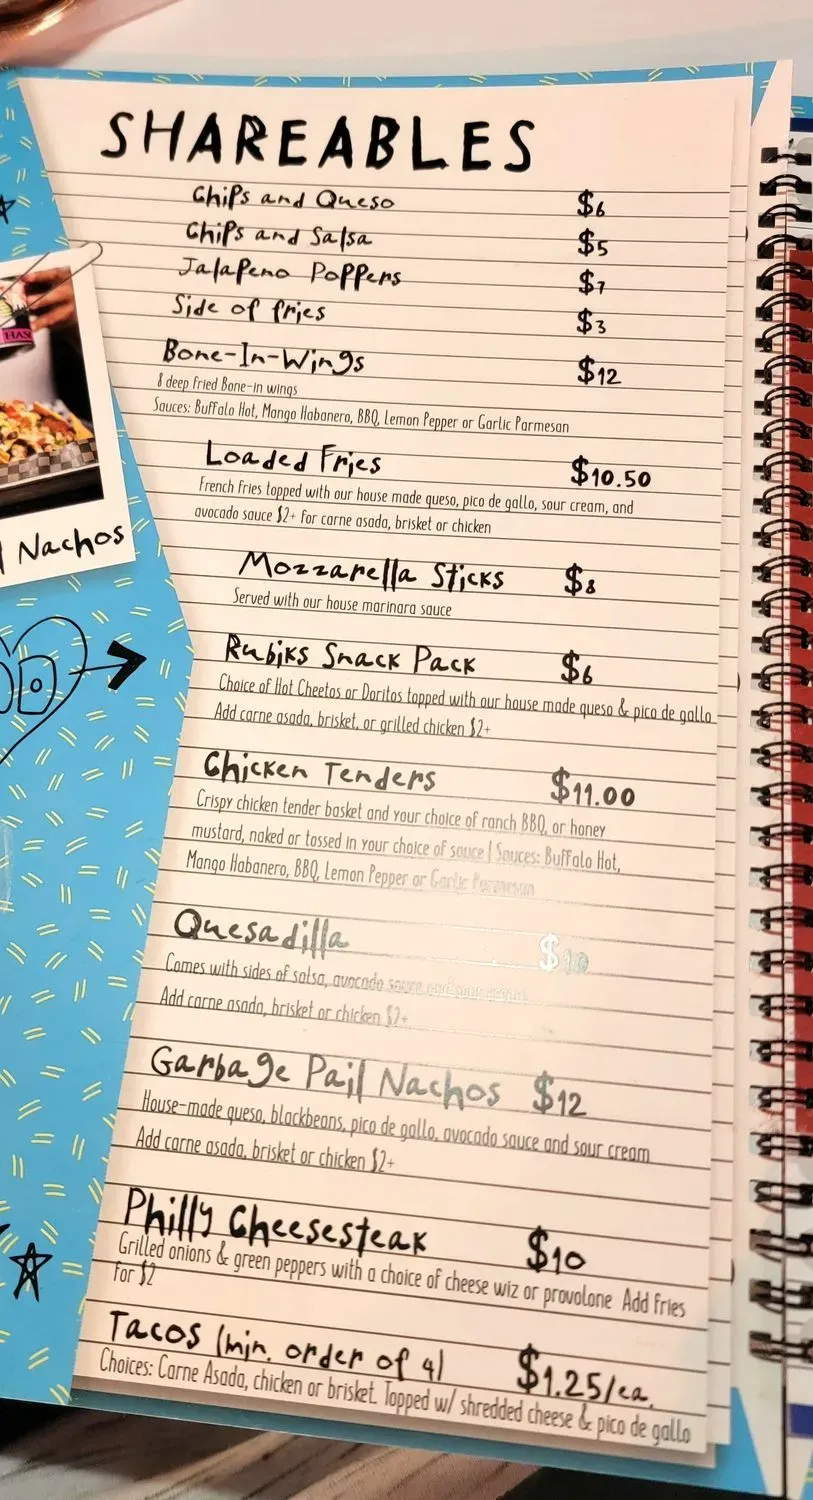 SHAREABLES
Chips and Queso $6
Chips and Salsa $5
Jalapeno Poppers $7
Side of fries $3
Bone-In-Wings $12
8 deep fried Bone-in wings
Sauces: Buffalo Hot, Mango Habanero, BBQ, Lemon Pepper or Garlic Parmesan
Loaded Fries $10.50
French Fries topped with our house made queso, pico de gallo, sour cream, and
avocado sauce $2+ for carne asada, brisket or chicken
Nachos
Mozzarella Sticks $8
Served with our house marinara sauce
Rubiks Snack Pack $6
Choice of Hot Cheetos or Doritos topped with our house made queso & pico de gallo
Add carne asada, brisket, or grilled chicken $2+
Chicken Tenders $11.00
Crispy chicken tender basket and your choice of ranch BBQ, or honey
mustard, naked or tossed in your choice of sauce | Sauces: Buffalo Hot,
Mango Habanero, BBQ, Lemon Pepper or Garlic Parmesan
Quesadilla $10
Comes with sides of salsa, avocado sauce and sour cream
Add carne asada, brisket or chicken $2+
Garbage Pail Nachos $12
House-made queso, blackbeans, pico de gallo, avocado sauce and sour cream
Add carne asada, brisket or chicken $2+
Philly Cheesesteak $10
Grilled onions & green peppers with a choice of cheese wiz or provolone Add fries
for $2
Tacos (min. order of 4) $1.25/ea.
Choices: Carne Asada, chicken or brisket. Topped w/ shredded cheese & pico de gallo